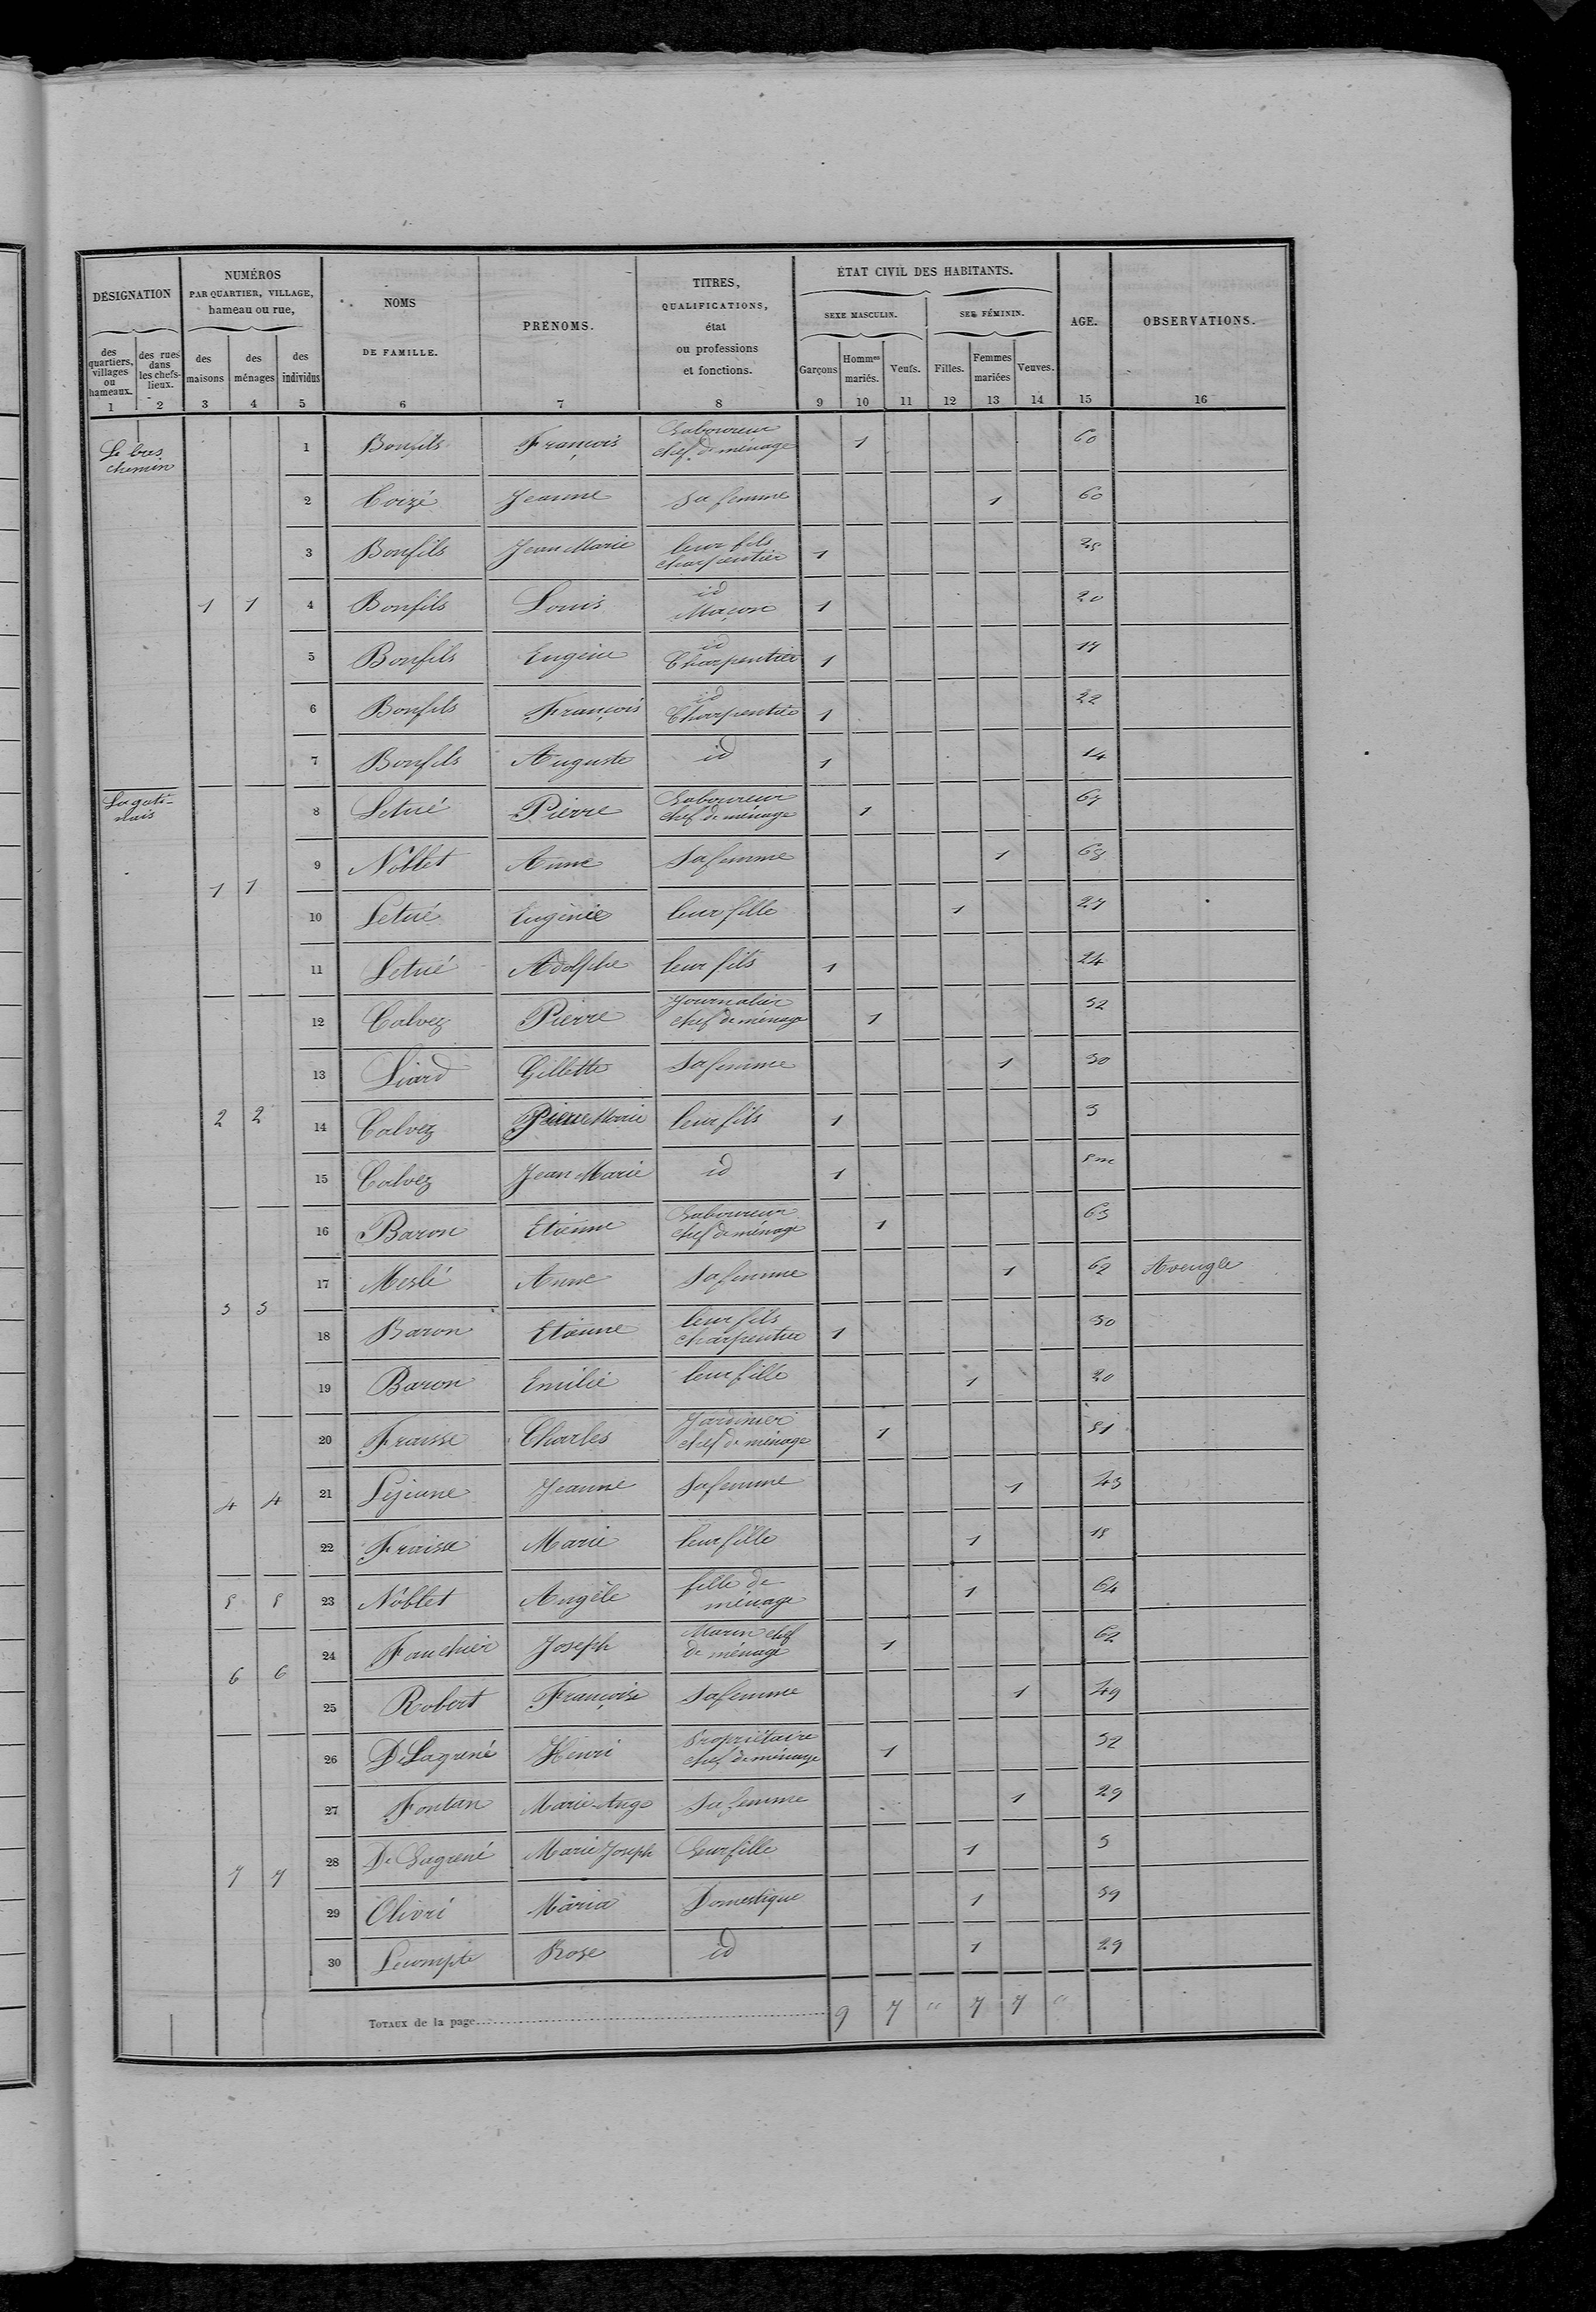 DÉSIGNATION
NUMÉROS
PAR QUARTIER, VILLAGE,
hameau ou rue,
NOMS
DE FAMILLE.
PRÉNOMS.
TITRES,
QUALIFICATIONS,
état
ou professions
et fonctions.
ÉTAT CIVIL DES HABITANTS.
SEXE MASCULIN.
SEXE FÉMININ.
AGE.
OBSERVATIONS.
des quartiers, villages ou hameaux.
des rues dans les chefs-lieux.
des maisons
des ménages
des individus
Garçons
Hommes mariés.
Veufs.
Filles.
Femmes mariées
Veuves.
1 2 3 4 5 6 7 8 9 10 11 12 13 14 15 16
Le bas chemin
1 Bonfils François Laboureur chef de ménage 1 60
2 Coizé Jeanne Sa femme 1 60
3 Bonfils Jean Marie leur fils charpentier 1 25
1 1 4 Bonfils Louis id Maçon 1 20
5 Bonfils Eugène id Charpentier 1 17
6 Bonfils François id Charpentier 1 22
7 Bonfils Auguste id 1 14
La gati-
nais
8 Letué Pierre Laboureur chef de ménage 1 67
9 Noblet Anne Sa femme 1 68
1 1
10 Letué Eugénie leur fille 1 27
11 Letué Adolphe leur fils 1 24
12 Calvez Pierre Journalier chef de ménage 1 32
13 Liard Gillette Sa femme 1 30
2 2 14 Calvez Pierre Marie leur fils 1 3
15 Calvez Jean Marie id 1 8 m
16 Baron Etienne Laboureur chef de ménage 1 63
17 Meslé Anne Sa femme 1 62 Aveugle
3 3
18 Baron Etienne leur fils charpentier 1 30
19 Baron Emilie leur fille 1 20
20 Fraisse Charles Jardinier chef de ménage 1 51
4 4 21 Lejeune Jeanne Sa femme 1 43
22 Fraisse Marie leur fille 1 15
5 5 23 Noblet Angèle fille de ménage 1 64
24 Fauchier Joseph Marin chef de ménage 1 62
6 6
25 Robert Françoise Sa femme 1 49
26 De Lagrené Henri Propriétaire chef de ménage 1 32
27 Fontan Marie-Ange Sa femme 1 29
28 De Lagrené Marie Joseph Leur fille 1 5
7 7
29 Olivri Maria Domestique 1 39
30 Lecompte Rose id 1 29
TOTAUX de la page 9 7 " 7 7 "